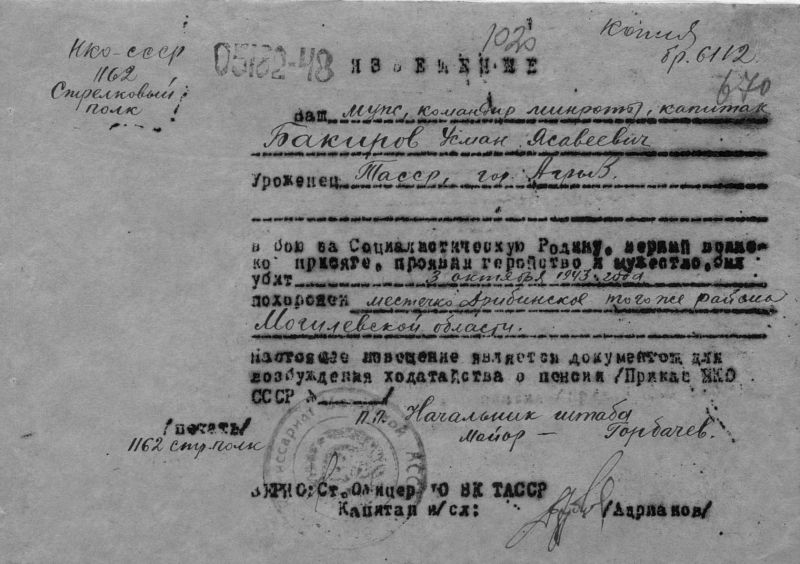 НКО-СССР
1162
Стрелковый
полк
05182-48
1020
Копия
бр. 6112.
670
ИЗВЕЩЕНИЕ
Ваш муж, командир минроты, капитан
Бакиров Усман Ясавеевич
Уроженец Тасср, гор.
в бою за Социалистическую Родину, верный воинс-
ко присяге, проявил геройство и мужество, был
убит 3 октября 1943 года
похоронен местечко Дрибинское того же района
Могилевской области.
Настоящее извещение является документом для
возбуждения ходатайства о пенсии /Приказ НКО
СССР №____/
/печать/
1162 стр. полк
п.п. Начальник штаба
Майор — Горбачев.
ВЕРНО: Ст. Офицер ВК ТАССР
Капитан и/сл: